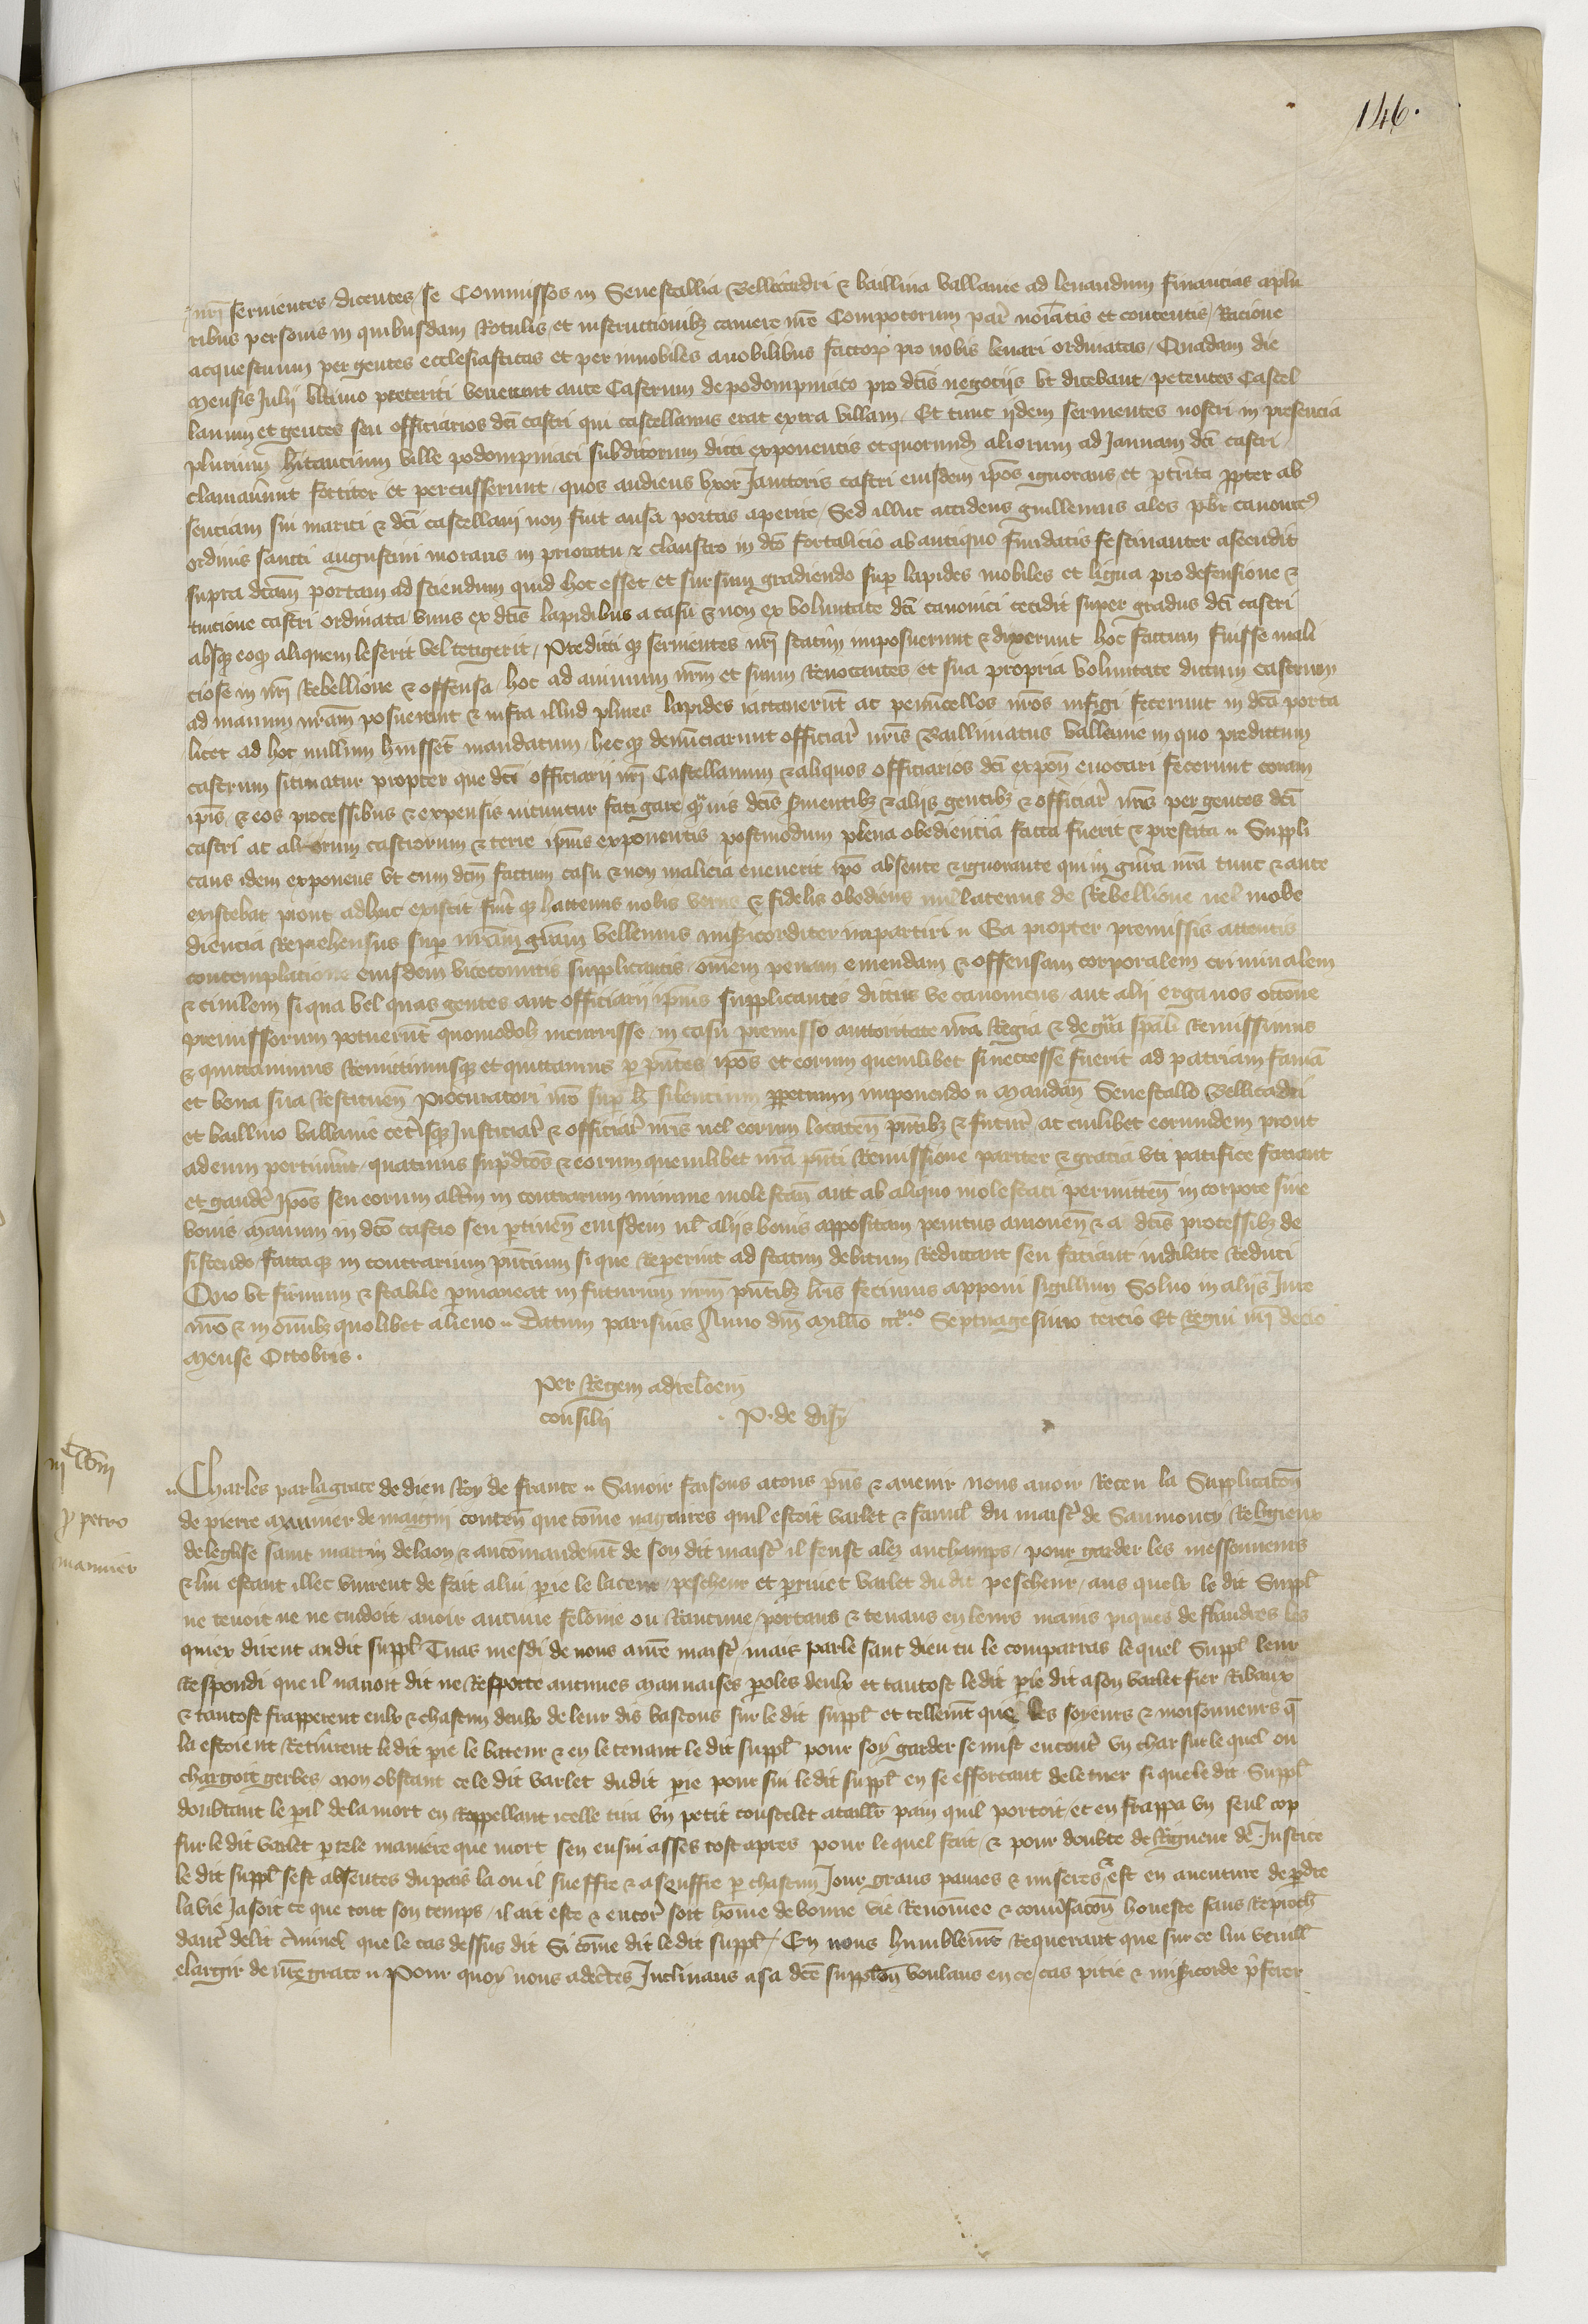 146.
nri servientes dicentes se Commissos in Senescallia Bellicadri & baillivia vallavie ad levandum financias a plu
ribus personis in quibusdam Rotulis et instructionibz camere nre Compotorum par noiatis et contentis Racione
acquestuum per gentes ecclesiasticas et per innobiles a nobilibus factorum pro nobis levari ordinatas Quadam die
mensis Julii ultimo preteriti venerunt ante Castrum de podompniaco pro dcis negociis ut dicebant petentes Castel
lanum et gentes seu officiarios dci castri qui castellanus erat extra villam Et tunc iidem servientes nostri in presencia
plurium hitancium ville podompniaci subditorum dicti exponentis et quorumd aliorum ad Januam dci castri
clamaverunt fortiter et percusserunt quos audiens uxor Janitoris castri eiusdem ipos ignorans et pterrita ppter ab
senciam sui mariti & dci castellani non fuit ausa portas aperire Sed illuc accidens guillemus ales pbr canonicus
ordinis sancti augustini morans in prioratu & claustro in dco fortalicio ab antiquo fundatis festinanter ascendit
supra dcam portam ad sciendum quid hoc esset et sursum gradiendo sup lapides mobiles et ligna pro defensione &
tuicione castri ordinata unus ex dcis lapidibus a casu & non ex voluntate dci canonici cecidit super gradus dci castri
absqz eoqz aliquem leserit vel tetigerit Predicti qz servientes nri statim imposuerunt & dixerunt hoc factum fuisse mali
ciose in nri Rebellione & offensa hoc ad animum nrm et suum Revocantes et sua propria voluntate dictum castrum
ad manum nram posuerunt & infra illud plures lapides iactaverunt ac penuncellos nros infigi fecerunt in dca porta
licet ad hoc nullum huissent mandatum hecqz denunciarunt officiar nris Bailliviatus vallavie in quo predictum
castrum situatur propter que dci officiarii nri Castellanum & aliquos officiarios dci expon evocari fecerunt coram
ipis & eos processibus & expensis nituntur fatigare qvis dcis servientibz & aliis gentibz & officiar nris per gentes dci
castri ac aliorum castrorum & terre ipius exponentis postmodum plena obediencia facta fuerit & prestita Suppli
cans idem exponens ut cum dcm factum casu & non malicia evenerit ipo absente & ignorante qui in guerra nra tunc & ante
existebat prout adhuc existit fuit qz hactenus nobis verus & fidelis obediens nullatenus de Rebellione vel inobe
diencia Reprehensus sup nram gram vellemus misericorditer impartiri Ea propter premissis attentis
contemplatione eiusdem vicecomitis supplicantis omem penam emendam & offensam corporalem criminalem
& civilem si qua vel quas gentes aut officiarii ipius supplicantis dictus ve canonicus aut alii erga nos occone
premissorum potuerunt quomodolz incurrisse in casu premisso auctoritate nra Regia & de gra spali Remissimus
& quictavimus Remittimusqz et quictamus p pntes ipos et eorum quemlibet si necesse fuerit ad patriam famam
et bona sua Restituen Procuratori nro sup h silencium ppetuum imponendo Mandan Senescallo Bellicadri
et baillivo vallavie ceterisqz Justiciar & officiar nris vel eorum locaten pntibz & futur ac cuilibet eorumdem prout
ad eum pertinuerit quatinus supdcos & eorum quemlibet nra pnti Remissione pariter & gracia uti pacifice faciant
et gaude Ipos seu eorum altrm in contrarium minime molestan aut ab aliquo molestari permitten in corpore sive
bonis manum in dco castro seu ptinen eiusdem vel aliis bonis appositam penitus amoven & a dcis processibz de
sistendo factaqz in contrarium pntium si que Reperint ad statum debitum Reducant seu faciant indilate Reduci
Quo ut firmum & stabile pmaneat in futurum nrm pntibz lris fecimus apponi sigillum Salvo in aliis Jure
nro & in omibz quolibet alieno Datum parisius Anno dni Millo ccc mo Septuagesimo tercio Et Regni nri decimo
Mense Octobris.
Per Regem ad relcoem
consilii P. de Disy
iiic lviii
p petro
mannier
Charles par la grace de dieu Roy de france Savoir faisons a tous pns & avenir nous avoir Receu la Supplicacon
de pierre mannier de maigni conten que come nagaires quil estoit varlet & famil du maistre de Saumoucy Religieux
de leglise saint martin de laon & au comandement de son dit maistr il feust alez aux champs pour garder les messonneurs
& lui estant illec vinrent de fait a lui pre le lateur pescheur et prinet varlet du dit pescheur aus quelx le dit Suppl
ne tenoit ne ne cuidoit avoir aucune felonie ou Rancune portans & tenans en leurs mains piques de flandres les
quiex dirent au dit suppl Tu as mesdi de nous a nre maistr mais par le sanc dieu tu le comparras le quel Suppl leur
Respondi que il navoit dit ne Resporte aucunes mauvaises poles deulx et tantost le dit pre dit a son varlet fier Ribaux
& tantost frapperent eulx & chascun deulx de leur dis bastons sur le dit suppl et tellement que les soyeurs & moisonneurs q
la estoient Retinrent le dit pre le bateur & en le tenant le dit suppl pour soy garder se mist encontre un char sur le quel on
chargoit gerbes Non obstant ce le dit varlet du dit pre poursui le dit suppl en se efforcant de le tuer si que le dit Suppl
doubtant le pil de la mort en Rappellant icelle tira un petit coustelet a taillr pain quil portoit et en frappa un seul cop
sur le dit varlet p tele maniere que mort sen ensui asses tost apres pour le quel fait & pour doubte de Rigueur de Justice
le dit suppl sest absentes du pais la ou il sueffre & a seuffre p chascun Jour grans paines & miseres & est en aventure de pdre
la vie Ja soit ce que tout son temps il ait este & encor soit home de bonne vie Renomee & conversacon honeste sans Reproch
dautr delit criminel que le cas dessus dit Si come dit le dit suppl En nous humblement Requerant que sur ce lui veuill
elargir de nre grace Pour quoy nous adcertes Inclinans a sa dce supplon voulans en ce cas pitie & misericorde pferer